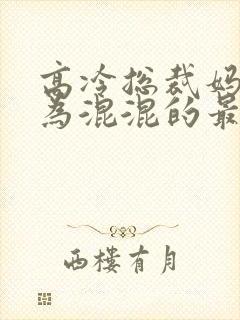 高冷总裁妈
为混混的最
西楼有月